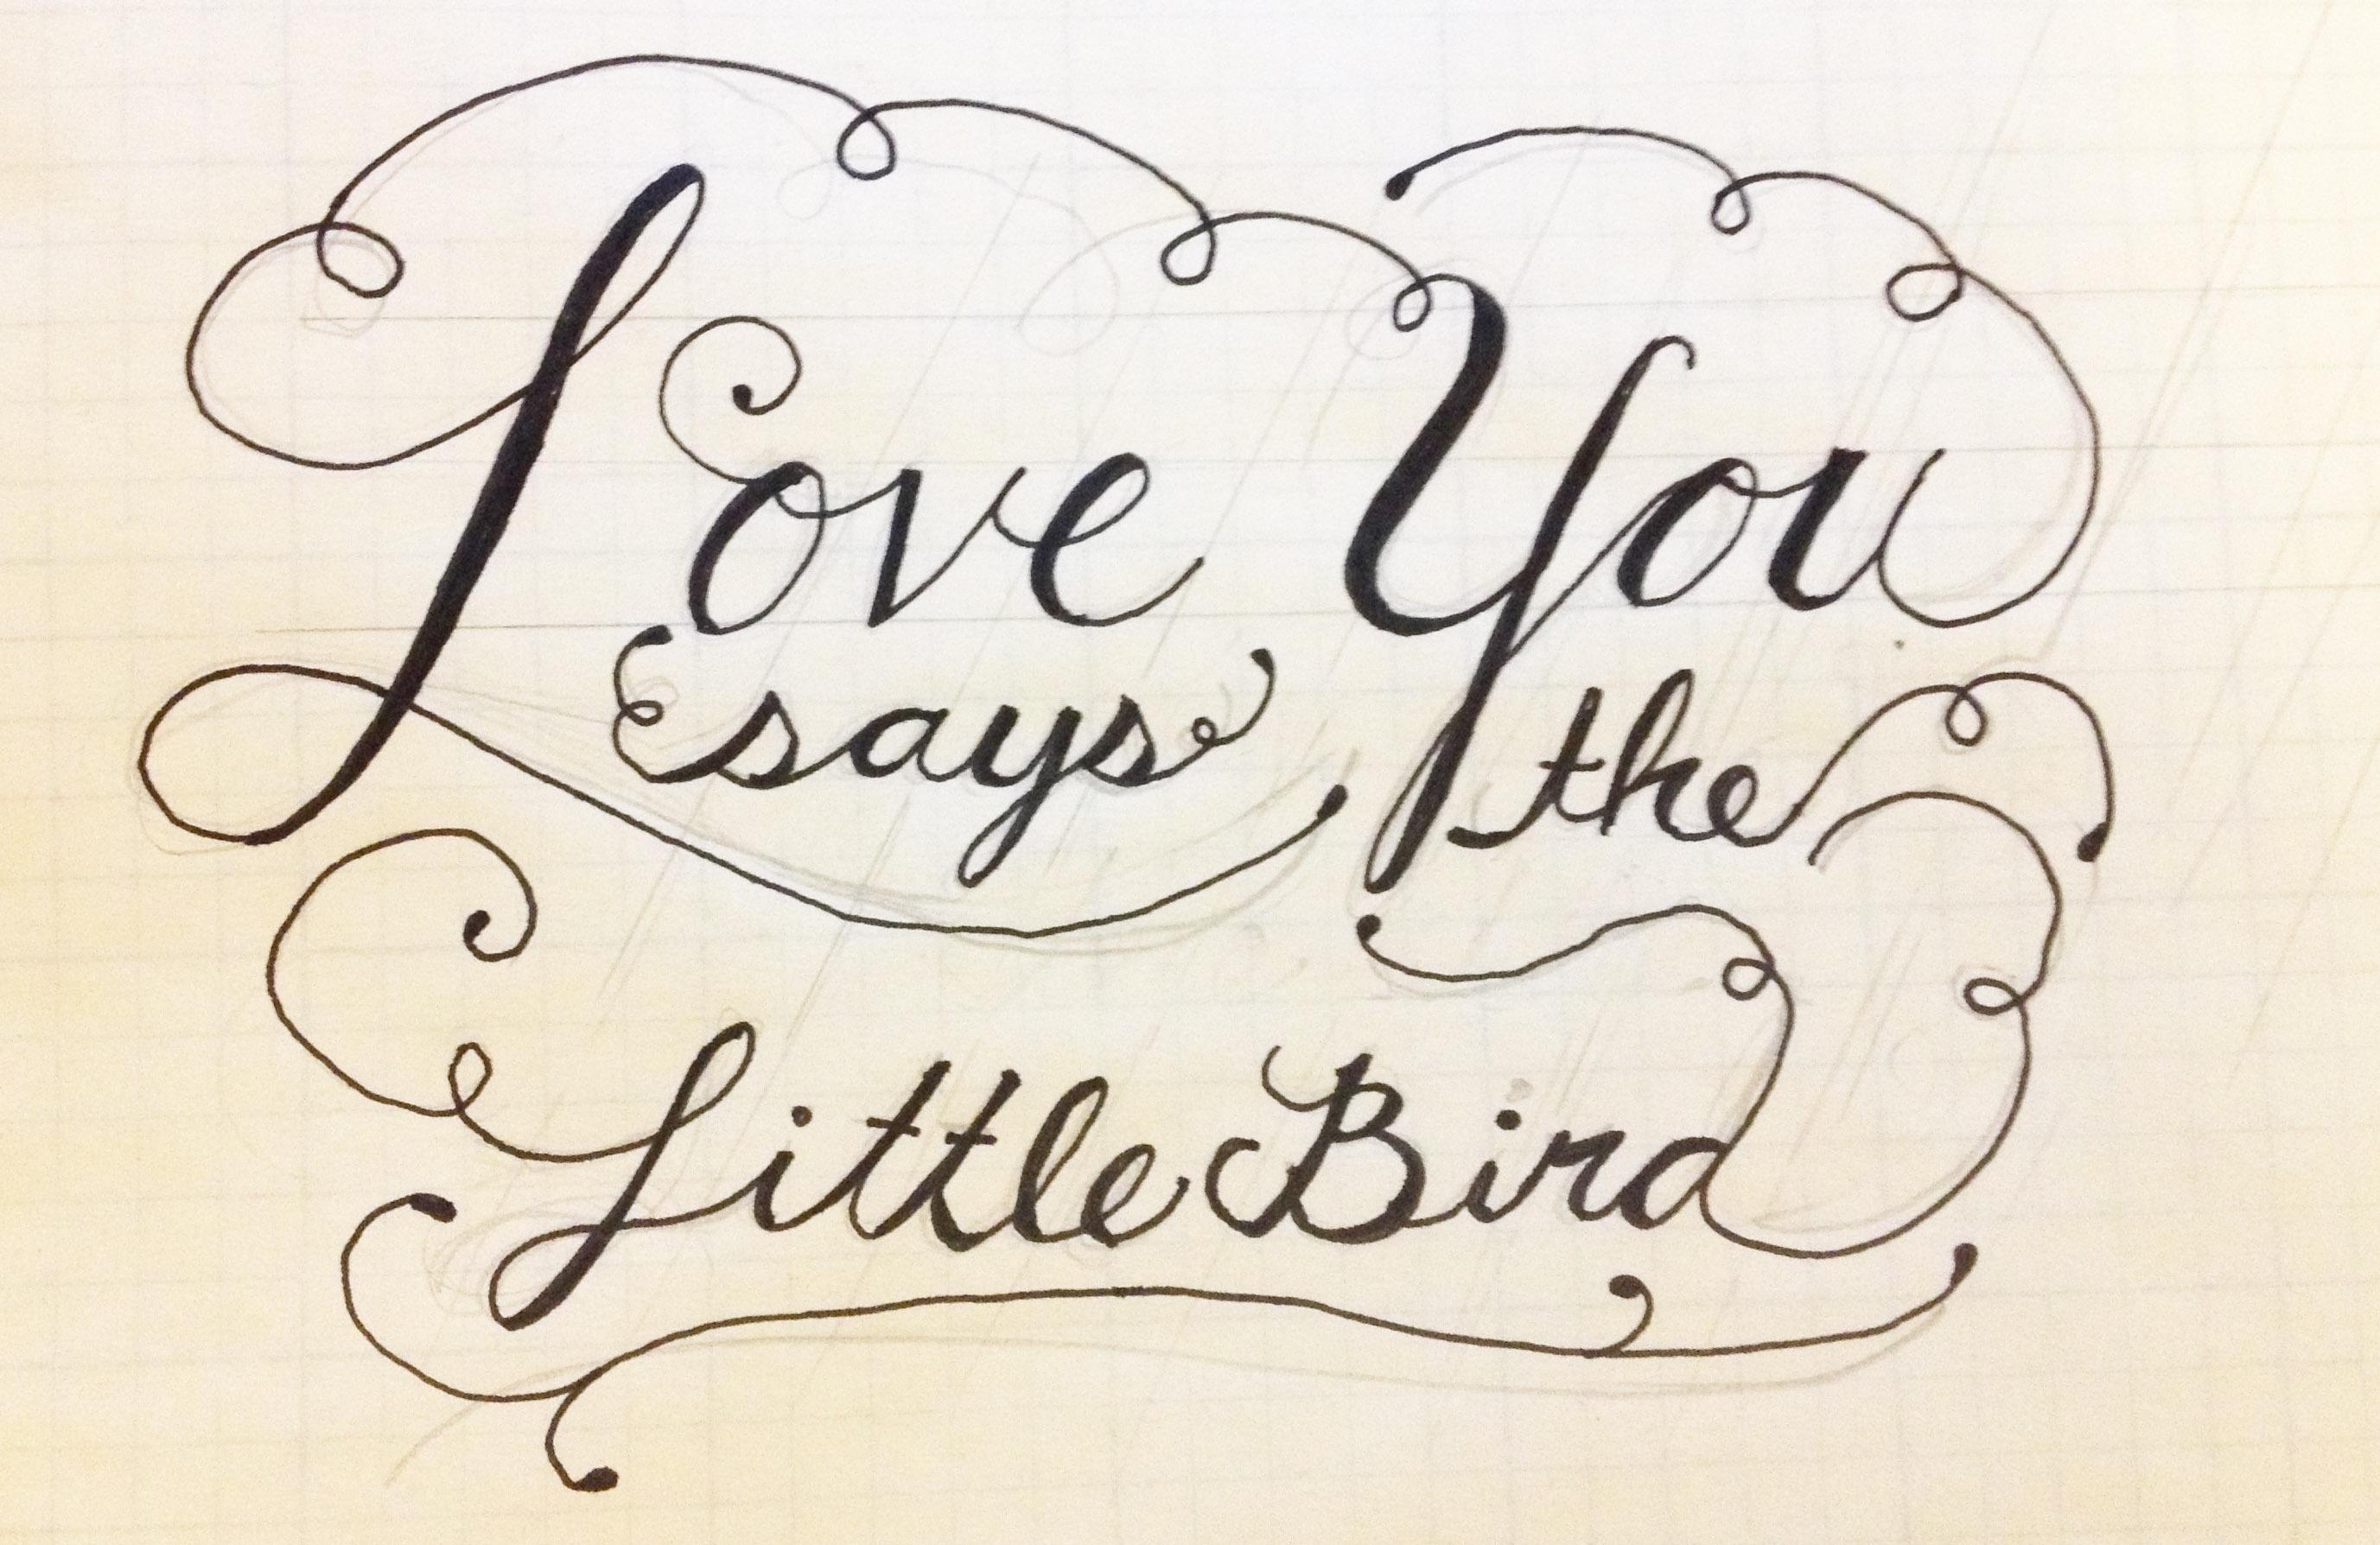 Love You
says the
Little Bird